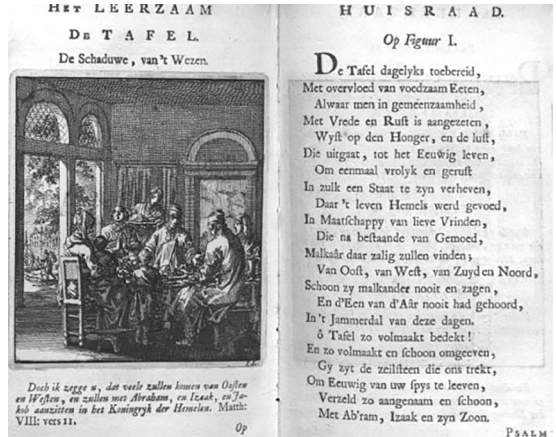 HET LEERZAAM
DE TAFEL.
De Schaduwe, van't Wezen.
Doch ik zegge u, dat veele zullen komen van Oosten
en Westen, en zullen met Abraham, en Izaak, en Ja-
kob aanzitten in het Koningryk der Hemelen. Matth:
VIII: vers 11.
Op
HUISRAAD.
Op Figuur I.
De Tafel dagelyks toebereid,
Met overvloed van voedzaam Eeten,
Alwaar men in gemeenzaamheid,
Met Vrede en Rust is aangezeten,
Wyst op den Honger, en de lust,
Die uitgaat, tot het Eeuwig leven,
Om eenmaal vrolyk en gerust
In zulk een Staat te zyn verheven,
Daar 't leven Hemels werd gevoed,
In Maatschappy van lieve Vrinden,
Die na bestaande van Gemoed,
Malkaâr daar zalig zullen vinden;
Van Oost, van West, van Zuyd en Noord,
Schoon zy malkander nooit en zagen,
En d'Een van d'Aâr nooit had gehoord,
In 't Jammerdal van deze dagen.
ô Tafel zo volmaakt bedekt!
En zo volmaakt en schoon omgeeven,
Gy zyt de zeilsteen die ons trekt,
Om Eeuwig van uw spys te leeven,
Verzeld zo aangenaam en schoon,
Met Ab'ram, Izaak en zyn Zoon.
PSALM